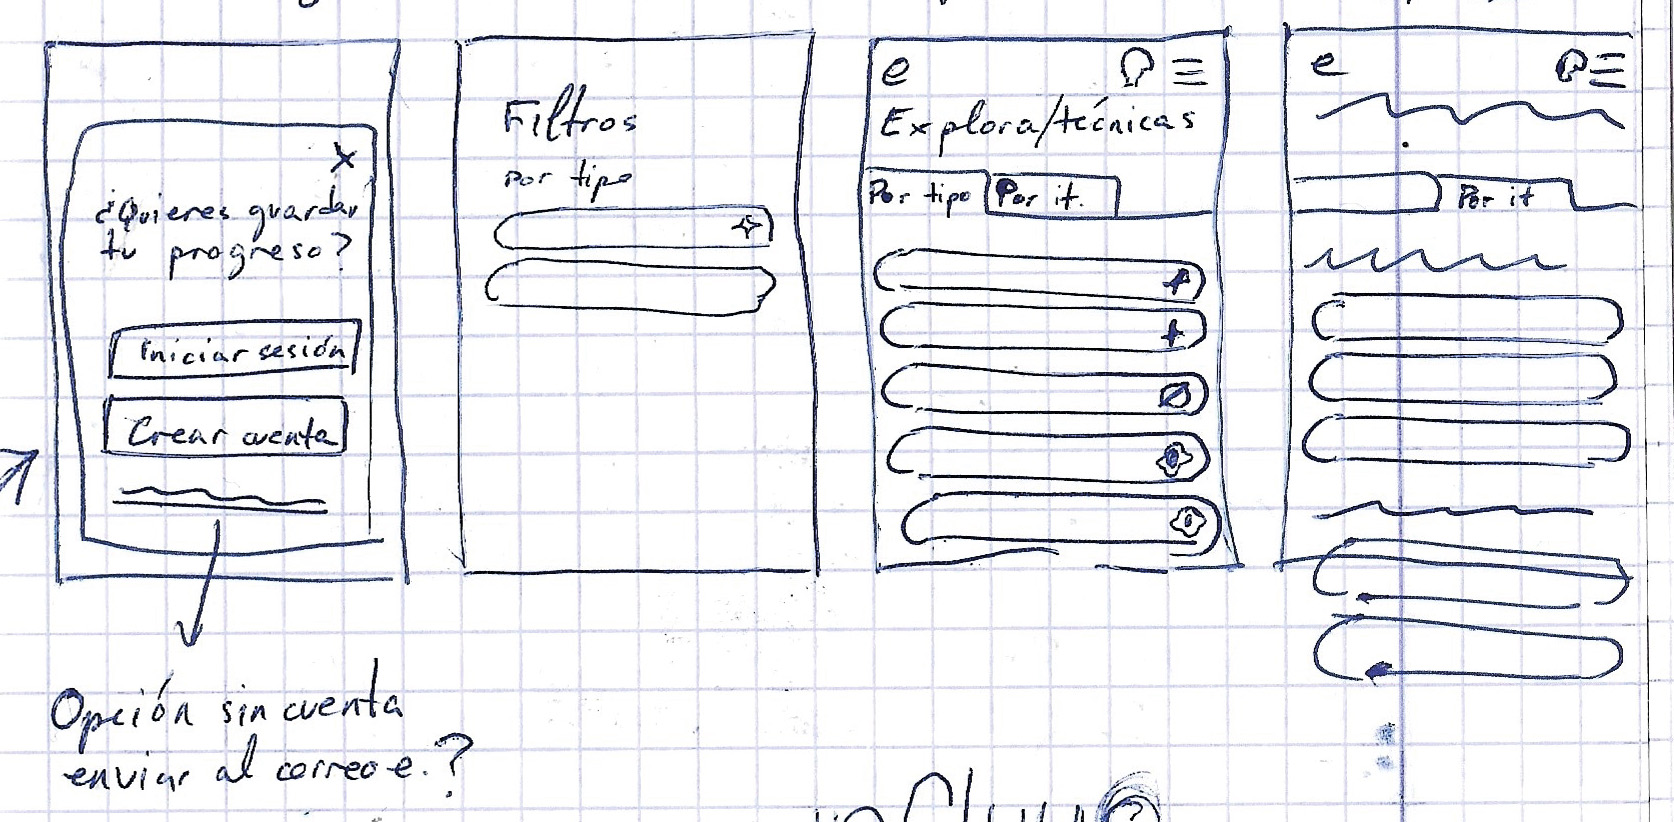 x
¿Quieres guardar
tu progreso?
Iniciar sesión
Crear cuenta
Opción sin cuenta
enviar al correo e.?
Filtros
por tipo
e
Explora/técnicas
Por tipo
Por it.
e
Por it